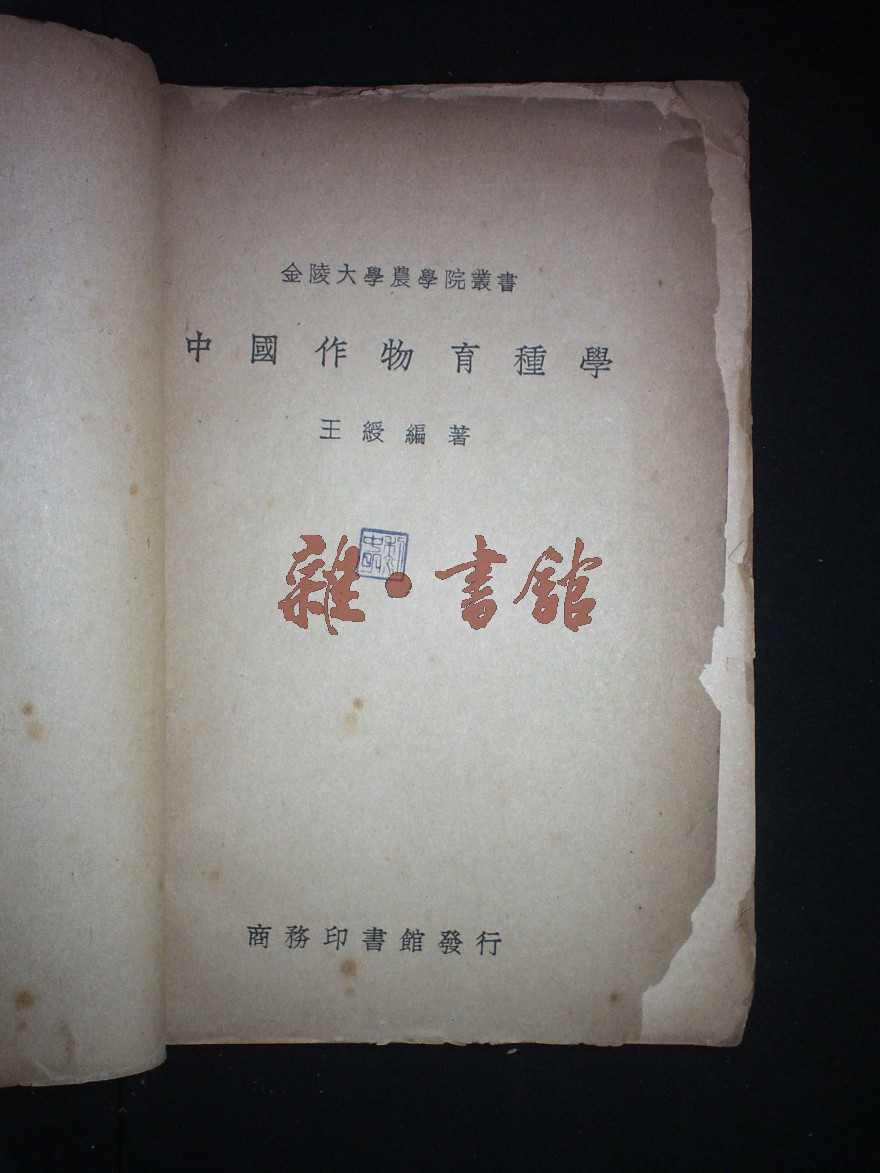 金陵大學農學院叢書
中國作物育種學
王綬編著
雜·書館
商務印書館發行